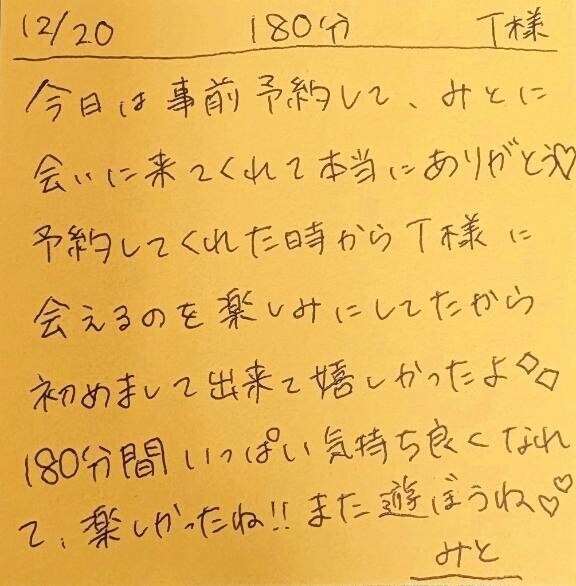 12/20 180分 T様
今日は事前予約して、みとに
会いに来てくれて本当にありがとう♡
予約してくれた時からT様に
会えるのを楽しみにしてたから
初めまして出来て嬉しかったよ◇◇
180分間いっぱい気持ち良くなれ
て、楽しかったね!!また遊ぼうね♡♡
みと